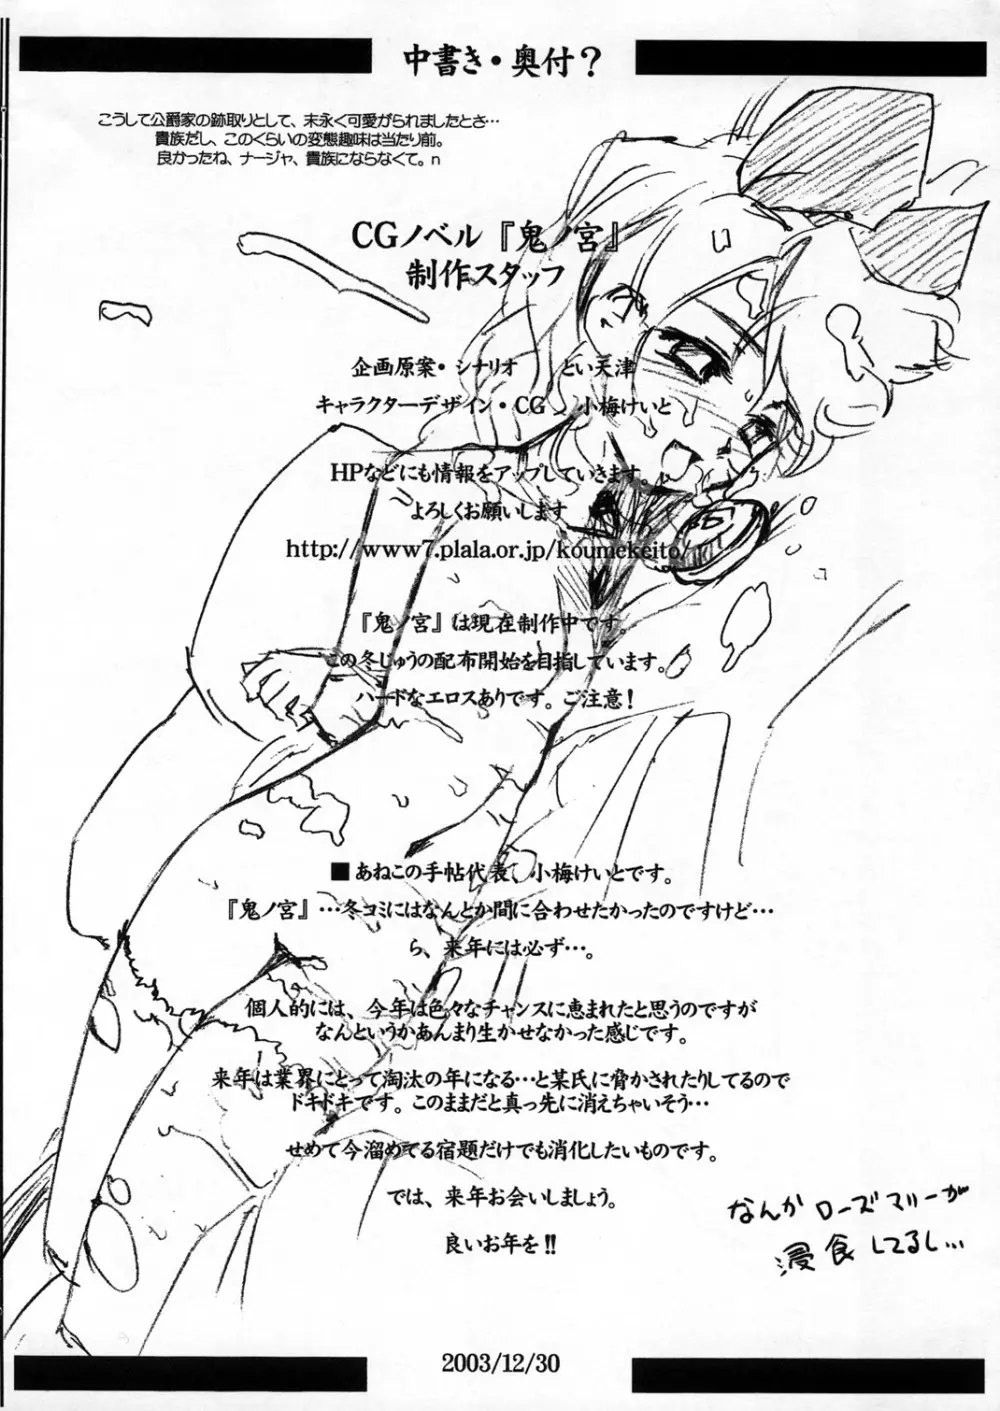 中書き・奥付?
こうして公爵家の跡取りとして、末永く可愛がられましたとさ…
貴族だし、このくらいの変態趣味は当たり前。
良かったね、ナージャ、貴族にならなくて。n
CGノベル『鬼ノ宮』
制作スタッフ
企画原案・シナリオ　とい天津
キャラクターデザイン・CG　小梅けいと
HPなどにも情報をアップしていきます。
よろしくお願いします
http://www7.plala.or.jp/koumekeito/
『鬼ノ宮』は現在制作中です。
この冬じゅうの配布開始を目指しています。
ハードなエロスありです。ご注意!
■あねこの手帖代表、小梅けいとです。
『鬼ノ宮』…冬コミにはなんとか間に合わせたかったのですけど…
ら、来年には必ず…。
個人的には、今年は色々なチャンスに恵まれたと思うのですが
なんというかあんまり生かせなかった感じです。
来年は業界にとって淘汰の年になる…と某氏に脅かされたりしてるので
ドキドキです。このままだと真っ先に消えちゃいそう…
せめて今溜めてる宿題だけでも消化したいものです。
では、来年お会いしましょう。
良いお年を!!
なんか ローズマリーが
浸食してるし…
2003/12/30